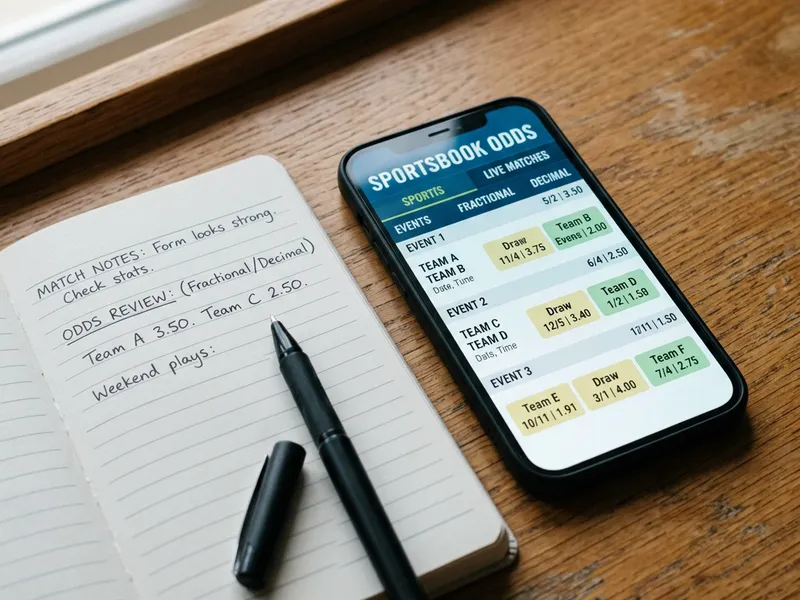 MATCH NOTES: Form looks strong.
Check stats.
ODDS REVIEW: (Fractional/Decimal)
Team A 3.50. Team C 2.50.
Weekend plays:
SPORTSBOOK ODDS
SPORTIS
LIVE MATCHES
EVENTS
FRACTIONAL
DECIMAL
EVENT 1
5/2 | 3.50
TEAM A
TEAM B
Date, Time
Draw
11/4 | 3.75
Team B
Evens | 2.00
EVENT 2
6/4 | 2.50
TEAM C
TEAM D
Dats, Time
Draw
12/5 | 3.40
Team D
1/2 | 1.50
EVENT 3
Team E
10/11 | 1.91
Draw
3/1 | 4.00
Team F
7/4 | 2.75